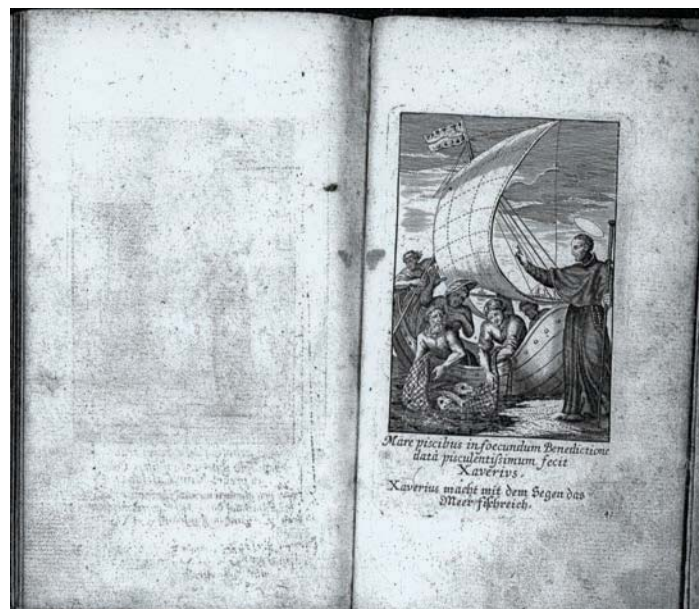 Mare piscibus infoecundum Benedictione
datâ pisculentiſsimum fecit
Xaverivs.
Xaverius macht mit dem Segen das
Meer fiſchreich.